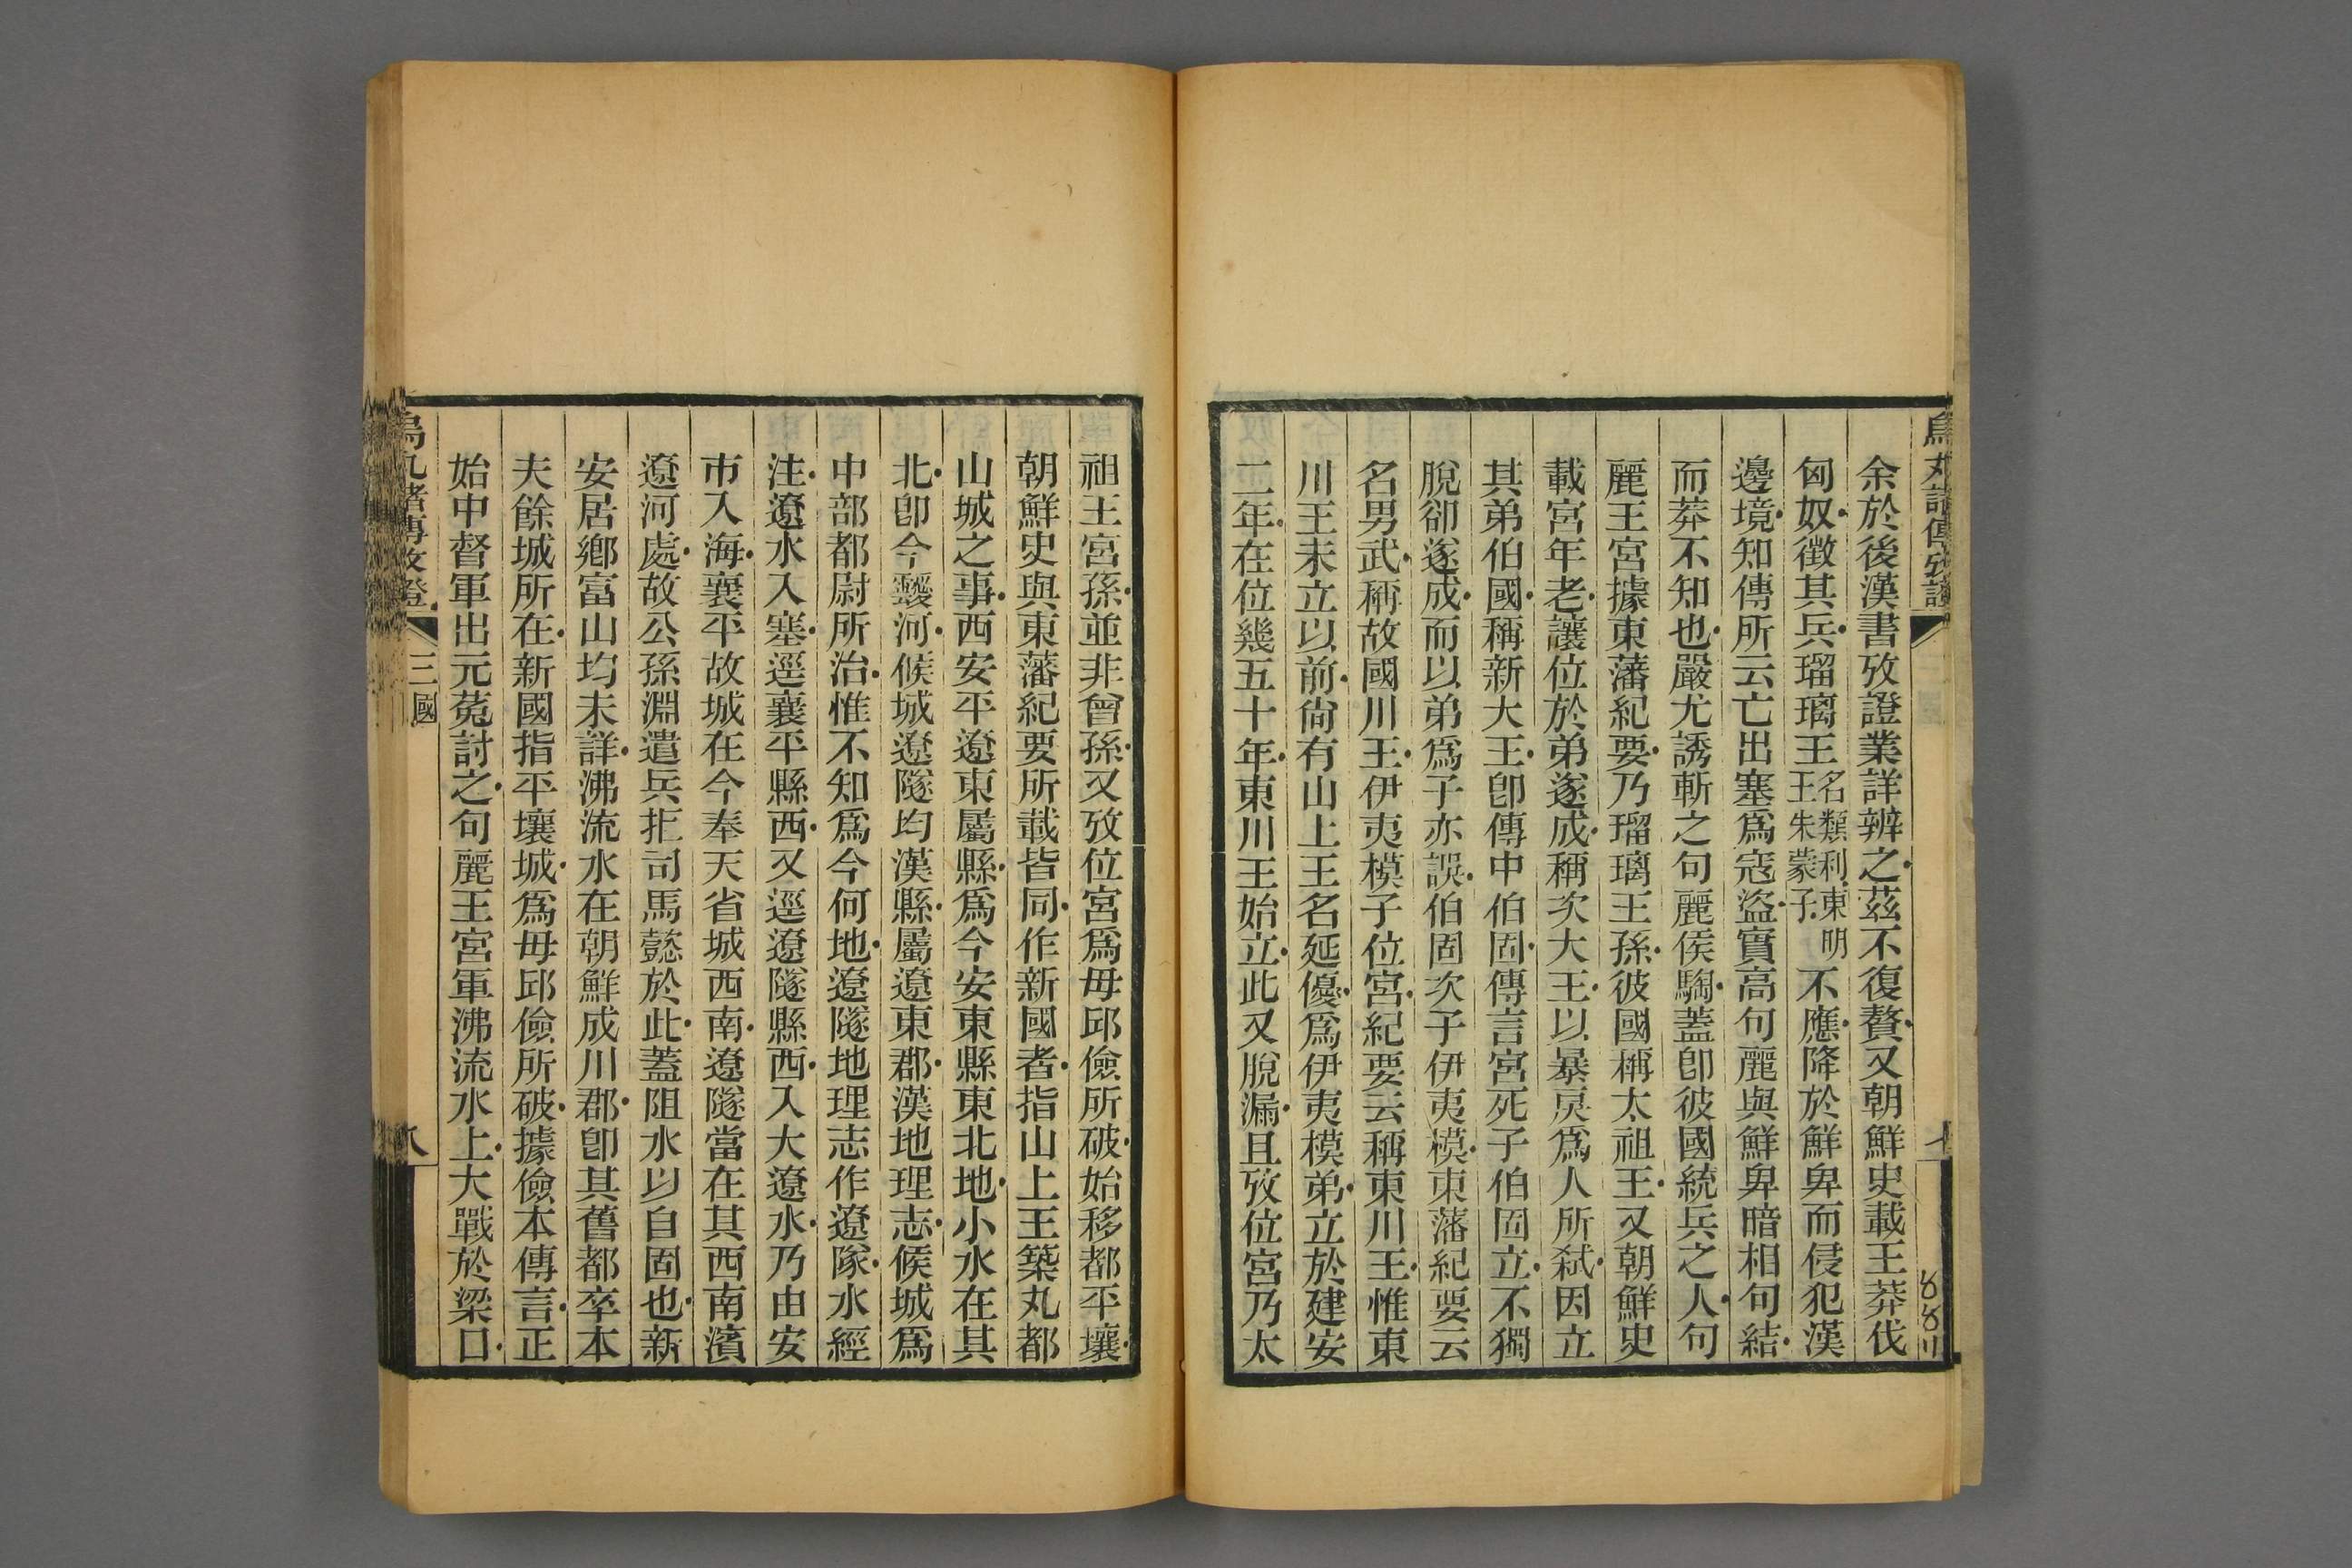 烏丸諸傳攷證
七
余於後漢書攷證業詳辨之茲不復贅又朝鮮史載王莽伐
匈奴徵其兵瑠璃王名類利東明王朱蒙子不應降於鮮卑而侵犯漢
邊境知傳所云亡出塞爲寇盜實高句麗與鮮卑暗相句結
而莽不知也嚴尤誘斬之句麗侯騶蓋卽彼國統兵之人句
麗王宮據東藩紀要乃瑠璃王孫彼國稱太祖王又朝鮮史
載宮年老讓位於弟遂成稱次大王以暴戾爲人所弑因立
其弟伯國稱新大王卽傳中伯固傳言宮死子伯固立不獨
脫卻遂成而以弟爲子亦誤伯固次子伊夷模東藩紀要云
名男武稱故國川王伊夷模子位宮紀要云稱東川王惟東
川王未立以前尙有山上王名延優爲伊夷模弟立於建安
二年在位幾五十年東川王始立此又脫漏且攷位宮乃太
祖王宮孫並非曾孫又攷位宮爲毋邱儉所破始移都平壤
朝鮮史與東藩紀要所載皆同作新國者指山上王築丸都
山城之事西安平遼東屬縣爲今安東縣東北地小水在其
北卽今靉河候城遼隧均漢縣屬遼東郡漢地理志候城爲
中部都尉所治惟不知爲今何地遼隧地理志作遼隊水經
注遼水入塞逕襄平縣西又逕遼隧縣西入大遼水乃由安
市入海襄平故城在今奉天省城西南遼隧當在其西南濱
遼河處故公孫淵遣兵拒司馬懿於此蓋阻水以自固也新
安居鄉富山均未詳沸流水在朝鮮成川郡卽其舊都卒本
夫餘城所在新國指平壤城爲毋邱儉所破據儉本傳言正
始中督軍出元菟討之句麗王宮軍沸流水上大戰於梁口
烏丸諸傳攷證
三國
八